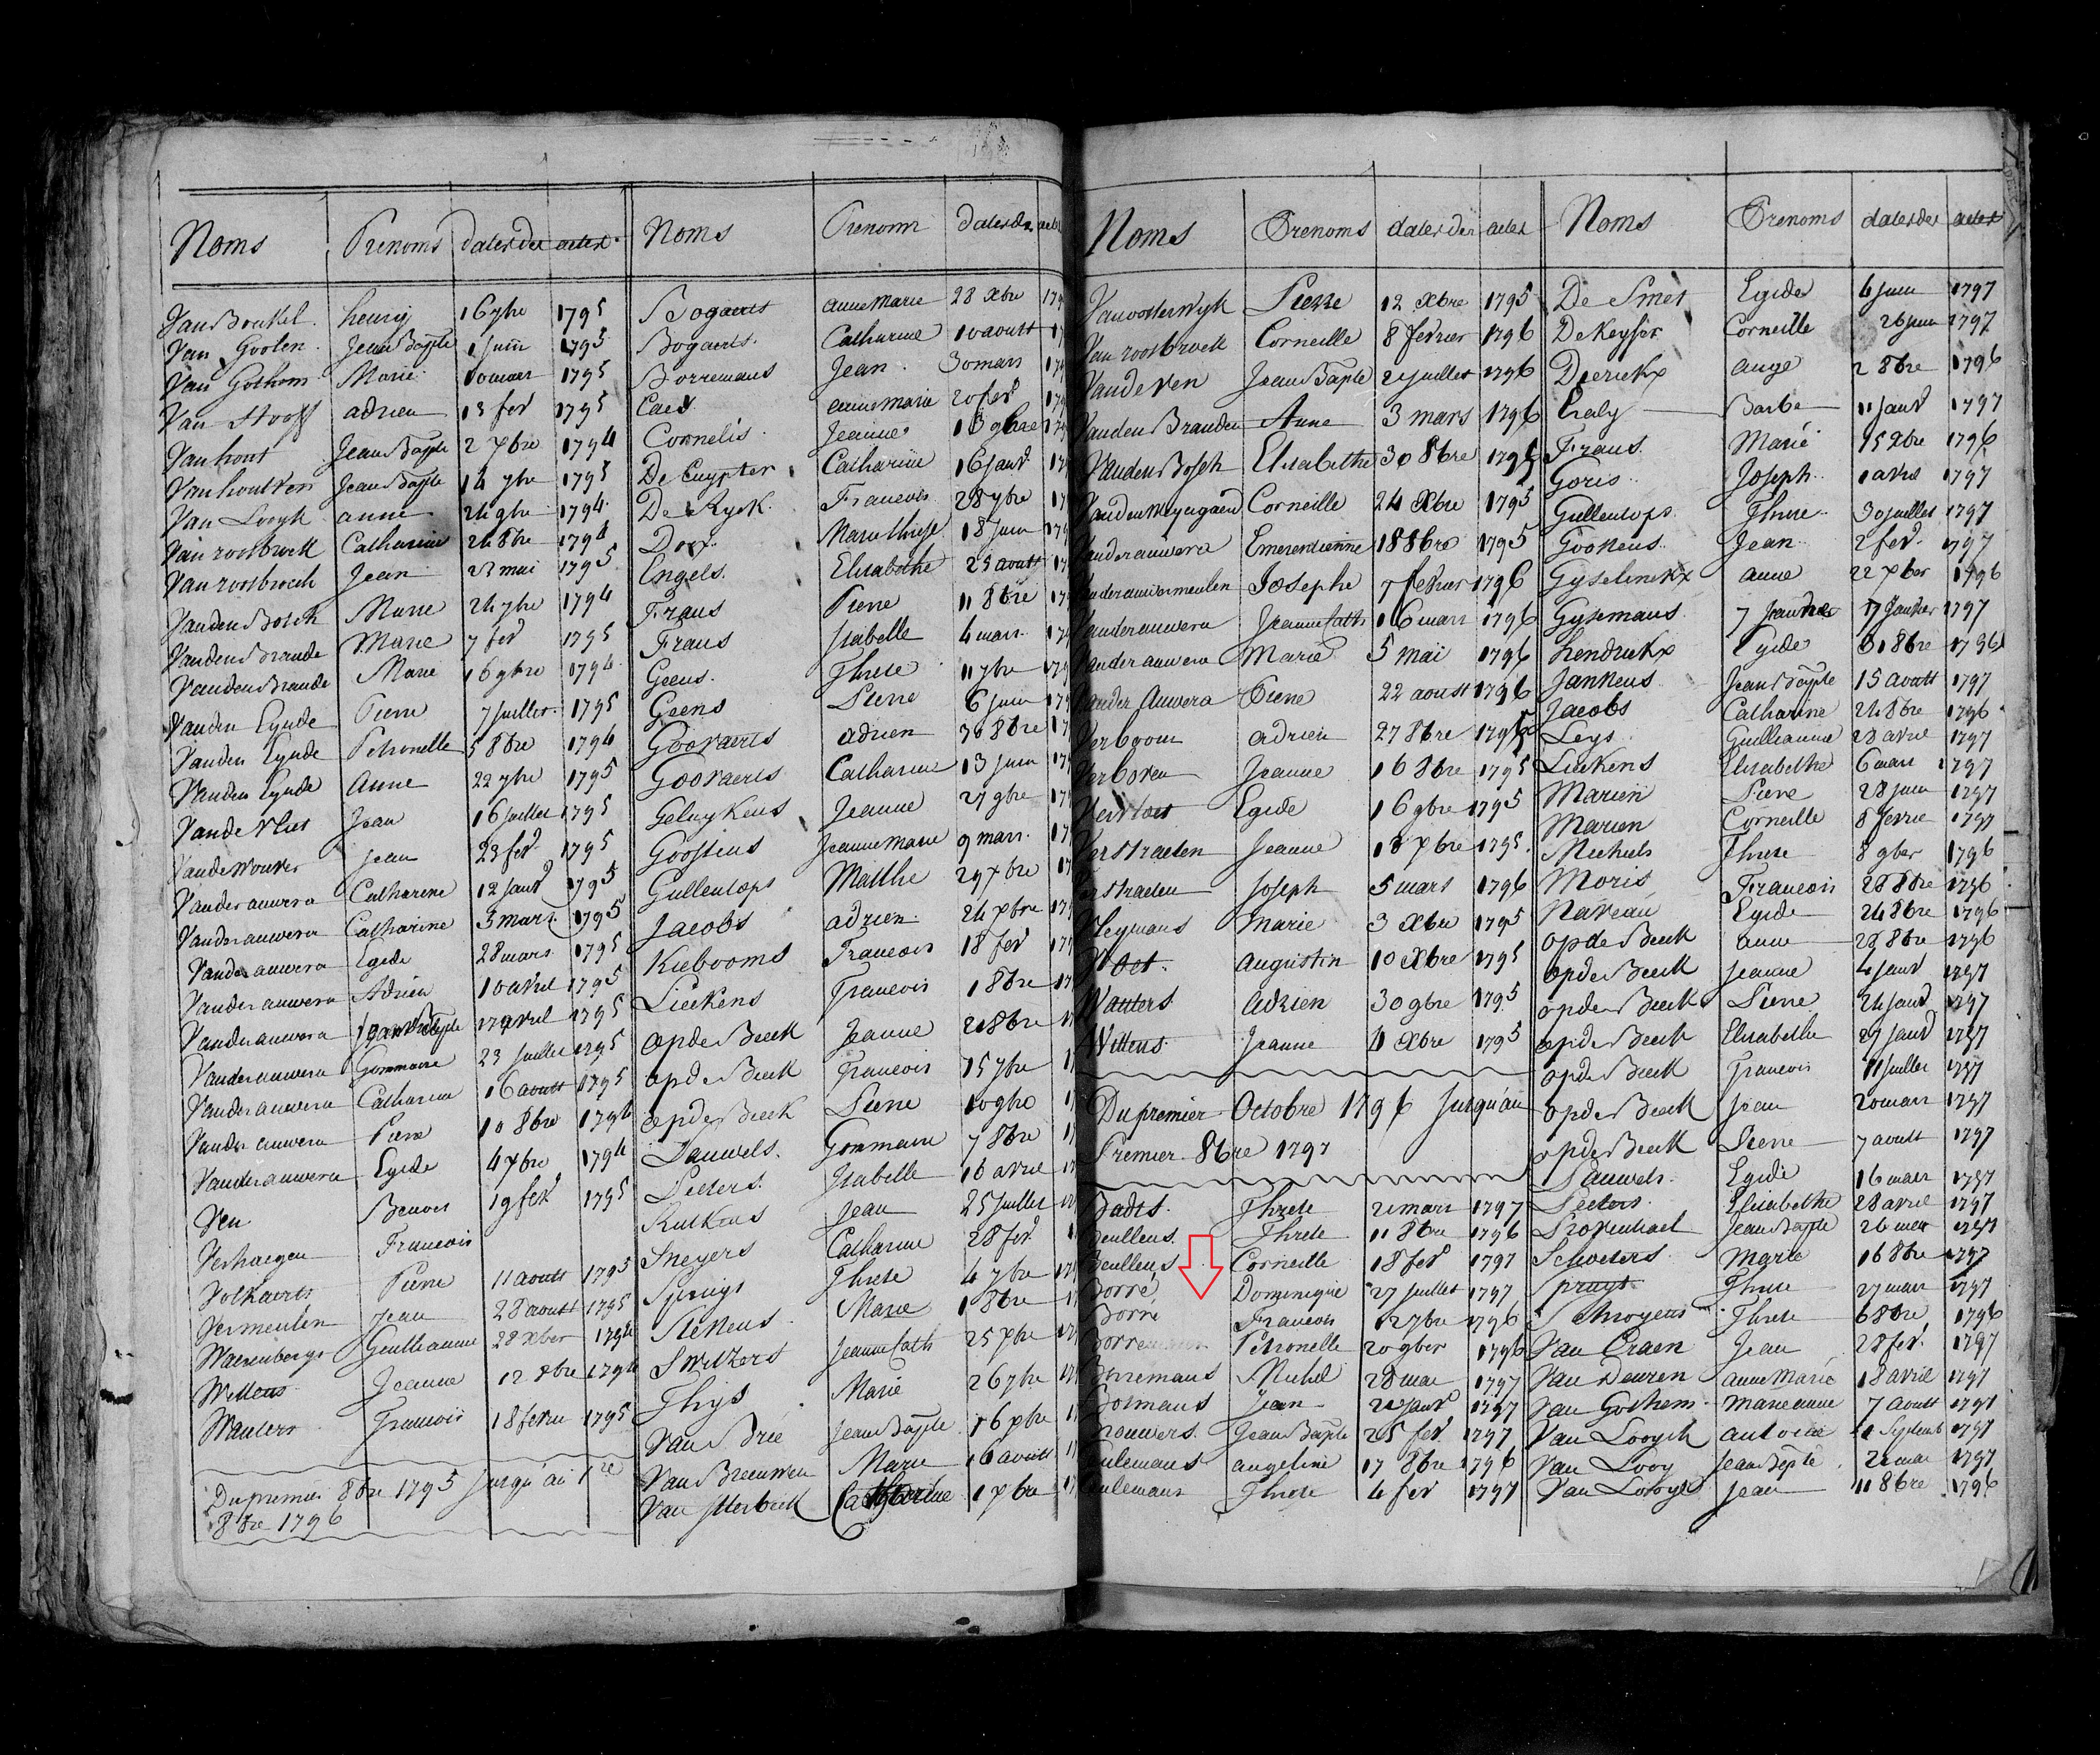 Noms Prenoms dates des actes
Van Boukel. henry 16 7bre 1795
Van Goolen Jean Bapte 1 Juin 1795
Van Gothem Marie 10 mars 1795
Van Hooff adrien 13 fev 1795
Van hout Jean Bapte 2 Xbre 1794
Van houtven Jean Bapte 14 7bre 1795
Van Looyk anne 24 9bre 1794
Van roosbroeck Catharine 24 8bre 1794
Van roosbroeck Jean 23 mai 1795
Vanden Bosch Marie 24 7bre 1794
Vanden Brande Marie 7 fev 1795
Vanden Brande Marie 16 9bre 1794
Vanden Eynde Pierre 7 Juillet 1795
Vanden Eynde Petronelle 5 8bre 1794
Vanden Eynde Anne 22 7bre 1795
Vande Vliet Jean 16 Juillet 1795
Vande Wouver Jean 23 fev 1795
Vander auwera Catharine 12 Janv 1795
Vander auwera Catharine 3 mars 1795
Vander auwera Egide 28 mars 1795
Vander auwera Adrien 10 avril 1795
Vander auwera Jean Bapte 17 avril 1795
Vander auwera Gommaire 23 Juillet 1795
Vander auwera Catharine 16 aoust 1795
Vander auwera Pierre 10 8bre 1794
Vander auwera Egide 4 Xbre 1794
Ven Benoit 19 fev 1795
Verhaegen Francois
Volkaerts Pierre 11 aoust 1795
Vermeulen Jean 28 aoust 1795
Waerenbergs Guilleaume 28 Xber 1794
Wellens Jeanne 12 8bre 1794
Wauters Francois 18 fevrie 1795
Du premier 8bre 1795 Jusqu'au 1re
8bre 1796
Noms Prenoms dates des actes
Bogaerts anne Marie 28 Xbre
Bogaerts Catharine 10 aoust
Borremans Jean 30 mars
Caes anne marie 20 fev
Cornelis Jeanne 10 9bre
De Cuypter Catharine 16 Janv
De Ryck Francois 28 7bre
Docx Marie threse 18 Juin
Engels Elisabethe 23 aoust
Frans Pierre 11 8bre
Frans Isabelle 4 mars
Geens Threse 11 7bre
Geens Pierre 6 Juin
Goovaerts adrien 30 8bre
Goovaerts Catharine 13 Juin
Geluykens Jeanne 27 9bre
Goossens Jeanne Marie 9 mars
Gullentops Matthe 29 Xbre
Jacobs adrien 24 Xbre
Kiebooms Francois 18 fev
Liekens Francois 1 8bre
op de Beeck Jeanne 2 8bre
op de Beeck Francois 15 7bre
op de Beeck Pierre 10 9bre
Pauwels Gommaire 7 8bre
Peeters Isabelle 16 avril
Rutkens Jean 25 Juillet
Sneyers Catharine 28 fev
Spruigt Threse 4 7bre
Stekens Marie 1 8bre
Switzers Jeanne Cath 25 Xbre
Thys Marie 26 7bre
Van Bree Jean Bapte 16 Xbre
Van Breeuwen Marie 16 aoust
Van sterbeeck Catharine 1 Xbre
Noms Prenoms dates des actes
Vanoosterwyk Pierre 12 Xbre 1795
Van roosbroeck Corneille 8 fevrier 1796
Vande Ven Jean Bapte 21 juillet 1796
Vanden Branden Anne 3 mars 1796
Vanden Bosch Elisabethe 30 8bre 1795
Vanden Wyngaerd Corneille 24 Xbre 1795
Vander auwera Emerentienne 18 8bre 1795
Vander auwermeulen Josephe 7 fevrier 1796
Vander auwera Jeanne Cath 16 mars 1796
Vander auwera Marie 5 mai 1796
Vander Auwera Pierre 22 aoust 1796
Verboom adrien 27 8bre 1795
Verboven Jeanne 16 8bre 1795
Verloet Egide 16 9bre 1795
Verstraeten Jeanne 18 Xbre 1795
Verstraeten Joseph 5 mars 1796
Vleymans Marie 3 Xbre 1795
Voet Augustin 10 Xbre 1795
Wauters Adrien 30 9bre 1795
Willems Jeanne 4 Xbre 1795
Du premier Octobre 1796 Jusqu'au
Premier 8bre 1797
Badts Threse 21 mars 1797
Beullens Threse 11 8bre 1796
Beullens Corneille 18 fev 1797
Borré Dominique 27 Juillet 1797
Borré Francois 12 7bre 1796
Borremans Petronelle 20 9ber 1796
Borremans Michel 28 mai 1797
Bosmans Jean 22 Janv 1797
Brouwers Jean Bapte 25 fev 1797
Ceulemans angeline 17 8bre 1796
Ceulemans Threse 4 fev 1797
Noms Prenoms dates des actes
De Smet Egide 6 juin 1797
De Keyser Corneille 26 juin 1797
Dierickx ange 2 8bre 1796
Eraly Barbe 11 Janv 1797
Frans Marie 15 Xbre 1796
Goris Joseph 1 avril 1797
Gullentops Threse 30 juillet 1797
Goosens Jean 2 fev. 1797
Gyselinckx anne 22 Xber 1796
Gysemans 7 Janvier 17 Janvier 1797
hendrickx Egide 31 8bre 1796
Jankens Jean Bapte 15 aoust 1797
Jacobs Catharine 24 8bre 1796
Leys Guilleaume 23 avril 1797
Liekens Elisabethe 6 mars 1797
Marien Pierre 28 juin 1797
Marien Corneille 8 fevrie 1797
Michiels Threse 8 9ber 1796
Moris Francois 28 8bre 1796
Naveau Egide 24 8bre 1796
op de Beeck anne 28 8bre 1796
op de Beeck Jeanne 4 Janv 1797
op de Beeck Pierre 24 Janv 1797
op de Beeck Elisabethe 29 Janv 1797
op de Beeck Francois 11 Juillet 1797
op de Beeck Jean 20 mars 1797
op de Beeck Pierre 7 aoust 1797
Pauwels Egide 16 mars 1797
Peeters Elisabethe 28 avril 1797
Provenhael Jean Bapte 26 mai 1797
Schoeters Marie 16 8bre 1797
Spruyt Threse 27 mars 1797
Schroyens Threse 6 8bre 1796
Van Craen Jean 28 fev. 1797
Van Deuren anne Marie 18 avril 1797
Van Gothem Marie anne 7 aoust 1797
Van Looyck antoine 1 Septemb 1797
Van Looy Jean Bapte 22 mai 1797
Van Looyes Jean 11 8bre 1796